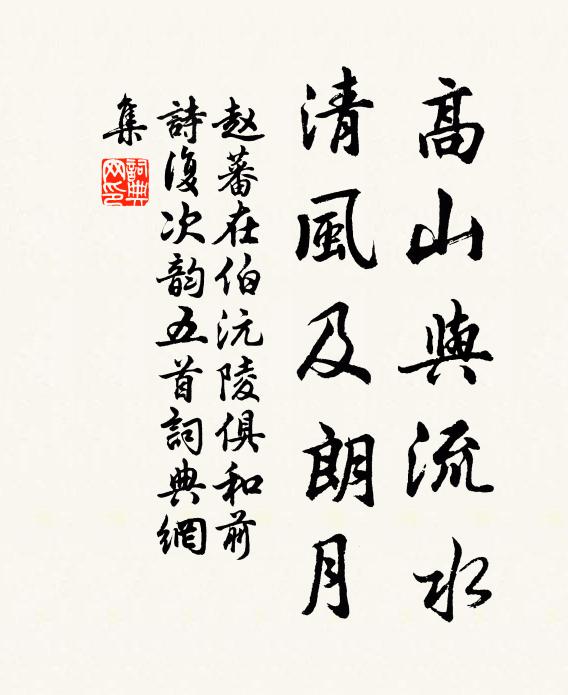 高山與流水
清風及朗月
赵蕃在伯沅陵俱和前
詩復次韵五首詞典網
集
詞典网印